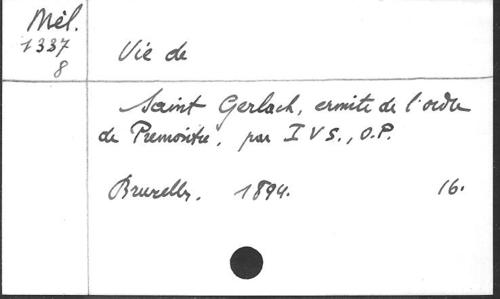 Mél.
1337
8
Vie de
Saint Gerlach, ermite de l'ordre
de Premontré, par I V S., O.P.
Bruxelles. 1894. 16.